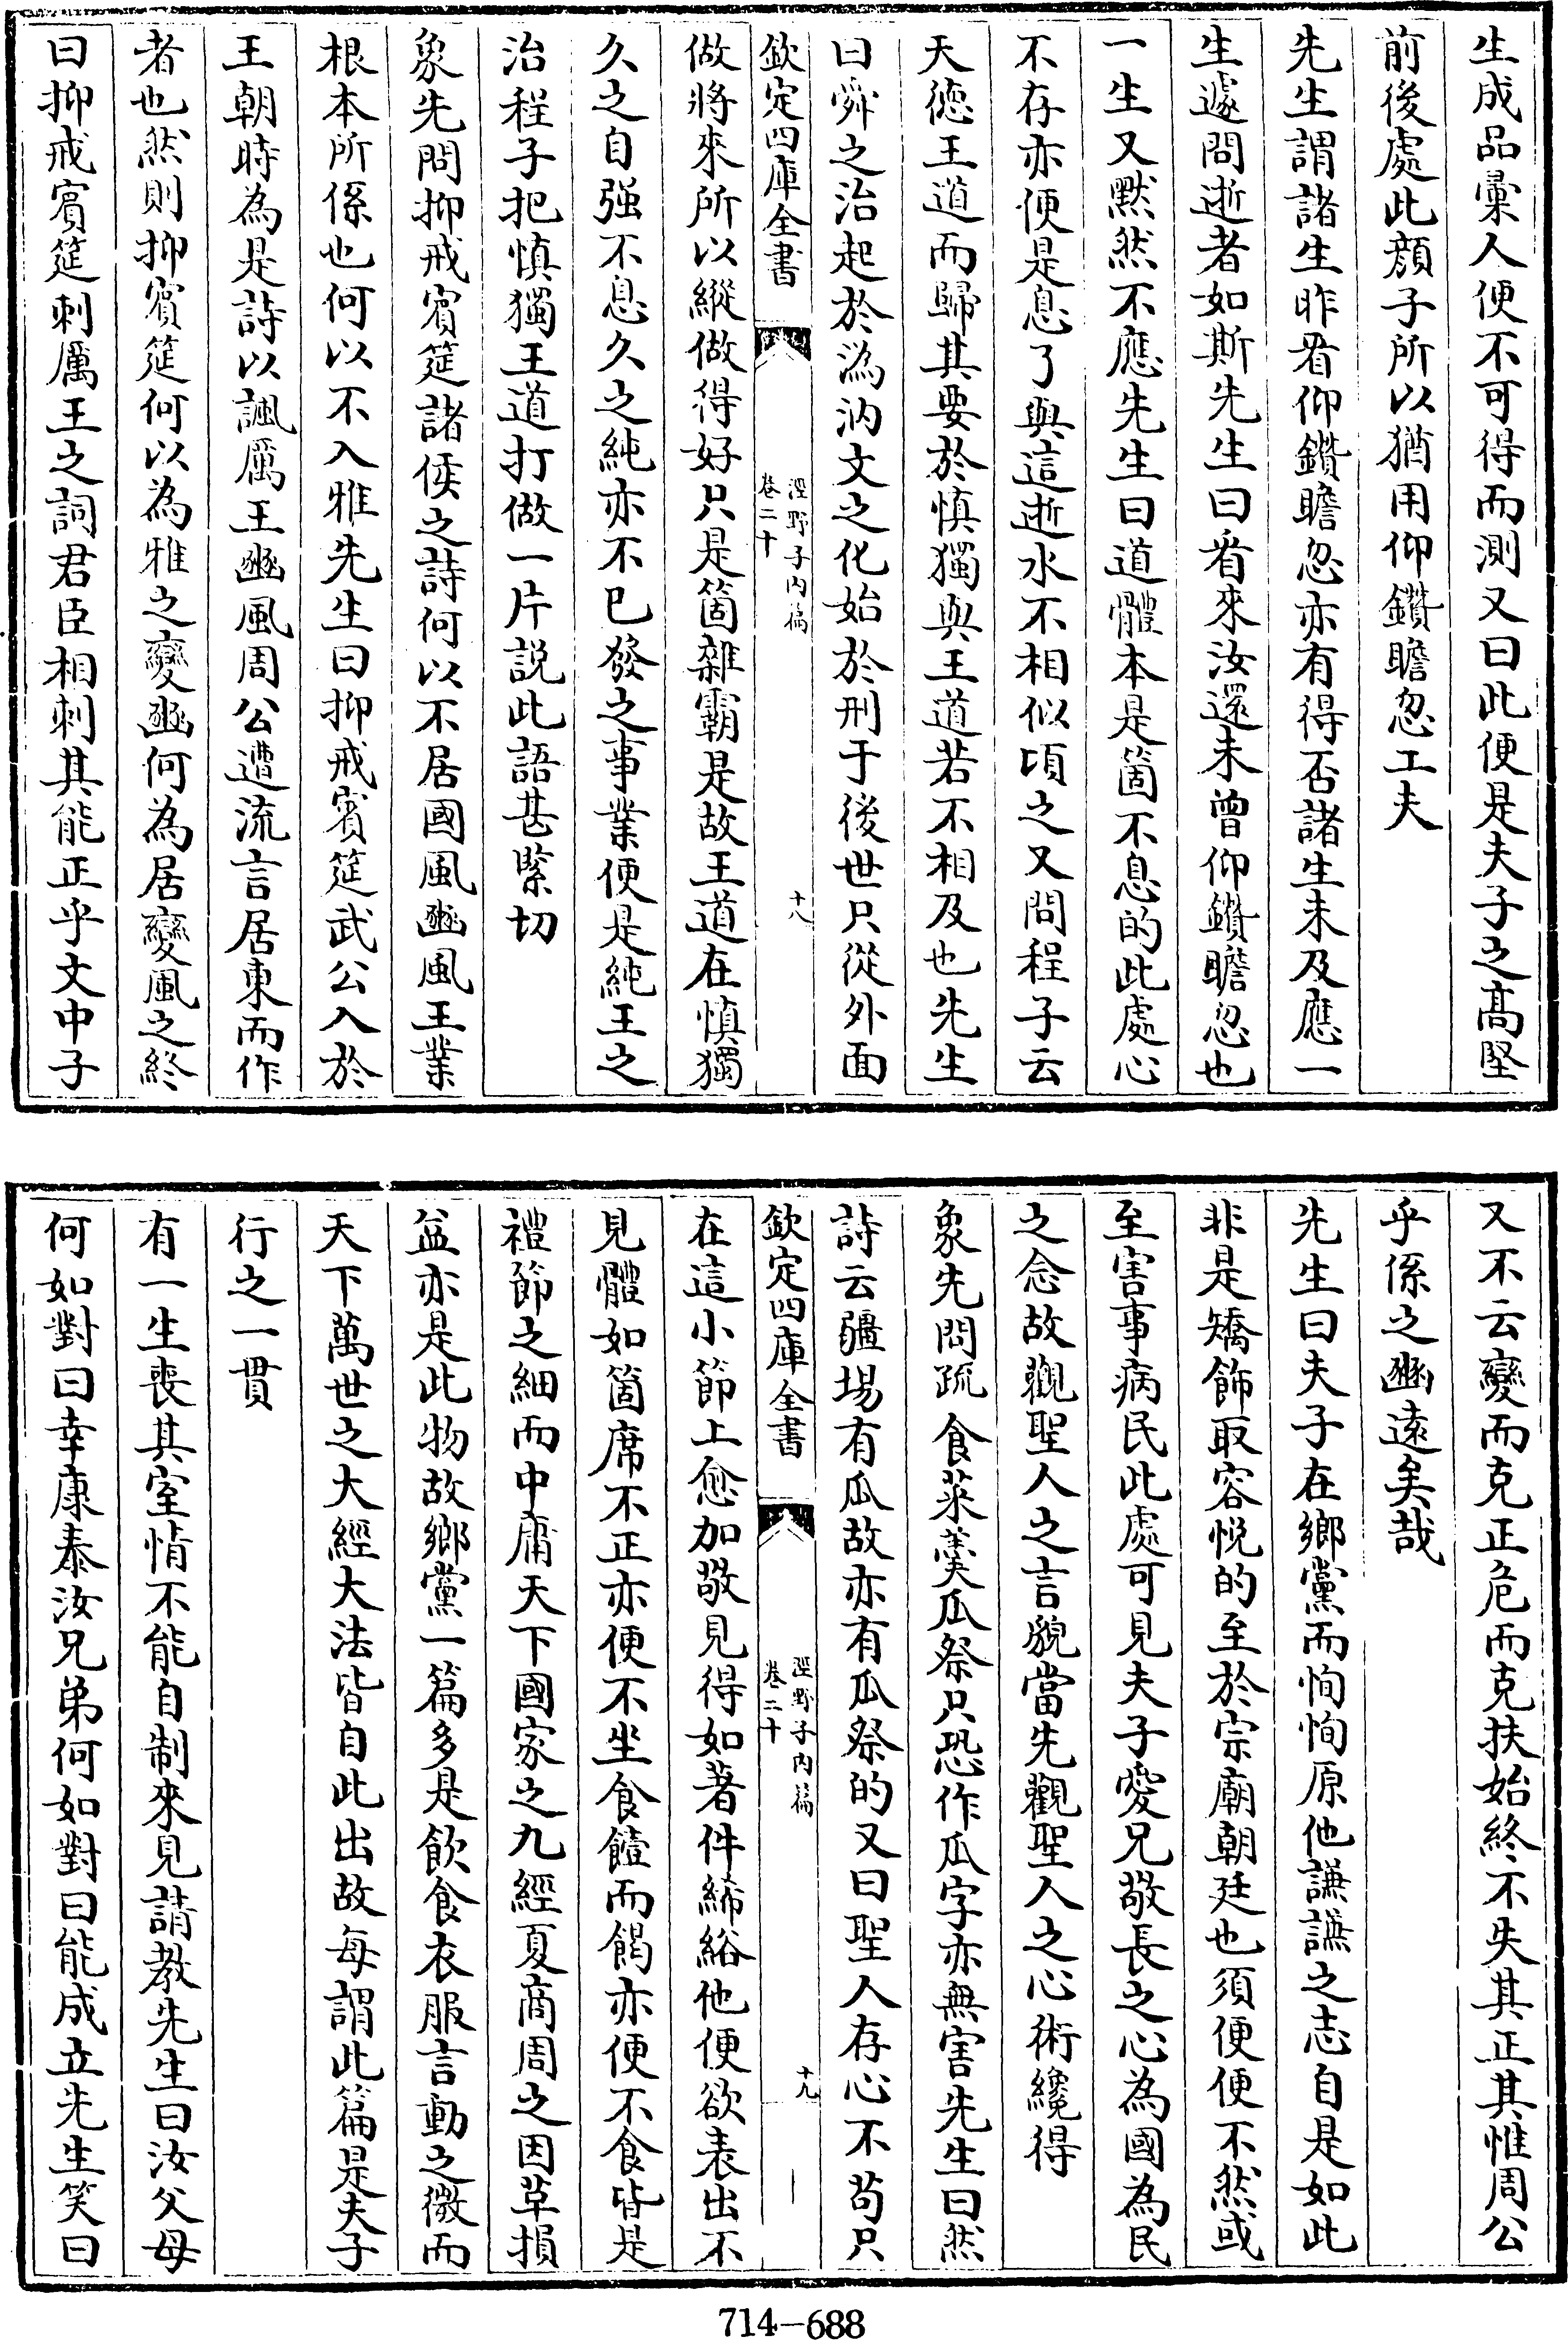 生成品彚人便不可得而測又曰此便是夫子之髙堅
前後處此顔子所以猶用仰鑽瞻忽工夫
先生謂諸生昨看仰鑽瞻忽亦有得否諸生未及應一
生遽問逝者如斯先生曰看來汝還未曾仰鑽瞻忽也
一生又默然不應先生曰道體本是箇不息的此處心
不存亦便是息了與這逝水不相似頃之又問程子云
天徳王道而歸其要於慎獨與王道若不相及也先生
曰舜之治起於溈汭文之化始於刑于後世只從外面
欽定四庫全書
涇野子内篇
卷二十
十八
做將來所以縱做得好只是箇雜霸是故王道在慎獨
久之自强不息久之純亦不已發之事業便是純王之
治程子把慎獨王道打做一片説此語甚緊切
象先問抑戒賓筵諸侯之詩何以不居國風豳風王業
根本所係也何以不入雅先生曰抑戒賓筵武公入於
王朝時為是詩以諷厲王豳風周公遭流言居東而作
者也然則抑賓筵何以為雅之變豳何為居變風之終
曰抑戒賓筵刺厲王之詞君臣相刺其能正乎文中子
又不云變而克正危而克扶始終不失其正其惟周公
乎係之豳逺矣哉
先生曰夫子在鄉黨而恂恂原他謙謙之志自是如此
非是矯飾取容悦的至於宗廟朝廷也須便便不然或
至害事病民此處可見夫子愛兄敬長之心為國為民
之念故觀聖人之言貌當先觀聖人之心術纔得
象先問疏食菜羮瓜祭只恐作瓜字亦無害先生曰然
詩云疆埸有瓜故亦有瓜祭的又曰聖人存心不茍只
欽定四庫全書
涇野子内篇
卷二十
十九
在這小節上愈加敬見得如著件絺綌他便欲表出不
見體如箇席不正亦便不坐食饐而餲亦便不食皆是
禮節之細而中庸天下國家之九經夏商周之因革損
益亦是此物故鄉黨一篇多是飲食衣服言動之微而
天下萬世之大經大法皆自此出故每謂此篇是夫子
行之一貫
有一生喪其室情不能自制來見請教先生曰汝父母
何如對曰幸康泰汝兄弟何如對曰能成立先生笑曰
714-688